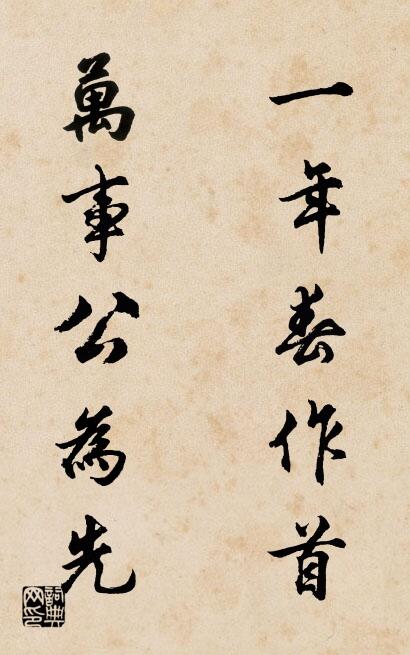 一年春作首
萬事公為先
詞典
网印